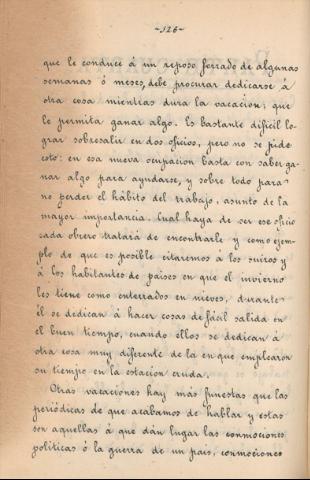 -126-
que le conduce á un reposo forzado de algunas
semanas ó meses, debe procurar dedicarse á
otra cosa mientras dura la vacación; que
le permita ganar algo. Es bastante difícil lo-
grar sobresalir en dos oficios, pero no se pide
esto: en esa nueva ocupacion basta con saber ga-
nar algo para ayudarse, y sobre todo para
no perder el hábito del trabajo, asunto de la
mayor importancia. Cual haya de ser ese oficio
cada obrero tratará de encontrarle y como ejem-
plo de que es posible citaremos á los suizos y
á los habitantes de paises en que el invierno
les tiene como enterrados en nieves, durante
él se dedican á hacer cosas de fácil salida en
el buen tiempo, cuando ellos se dedican á
otra cosa muy diferente de la en que emplearon
su tiempo en la estación cruda.
Otras vacaciones hay más funestas que las
periódicas de que acabamos de hablar y estas
son aquellas á que dán lugar las conmociones
políticas ó la guerra de un pais, conmociones